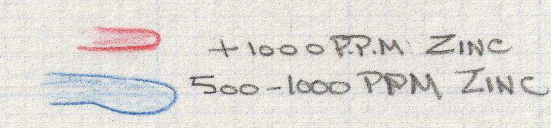 +1000 P.P.M ZINC
500-1000 PPM ZINC